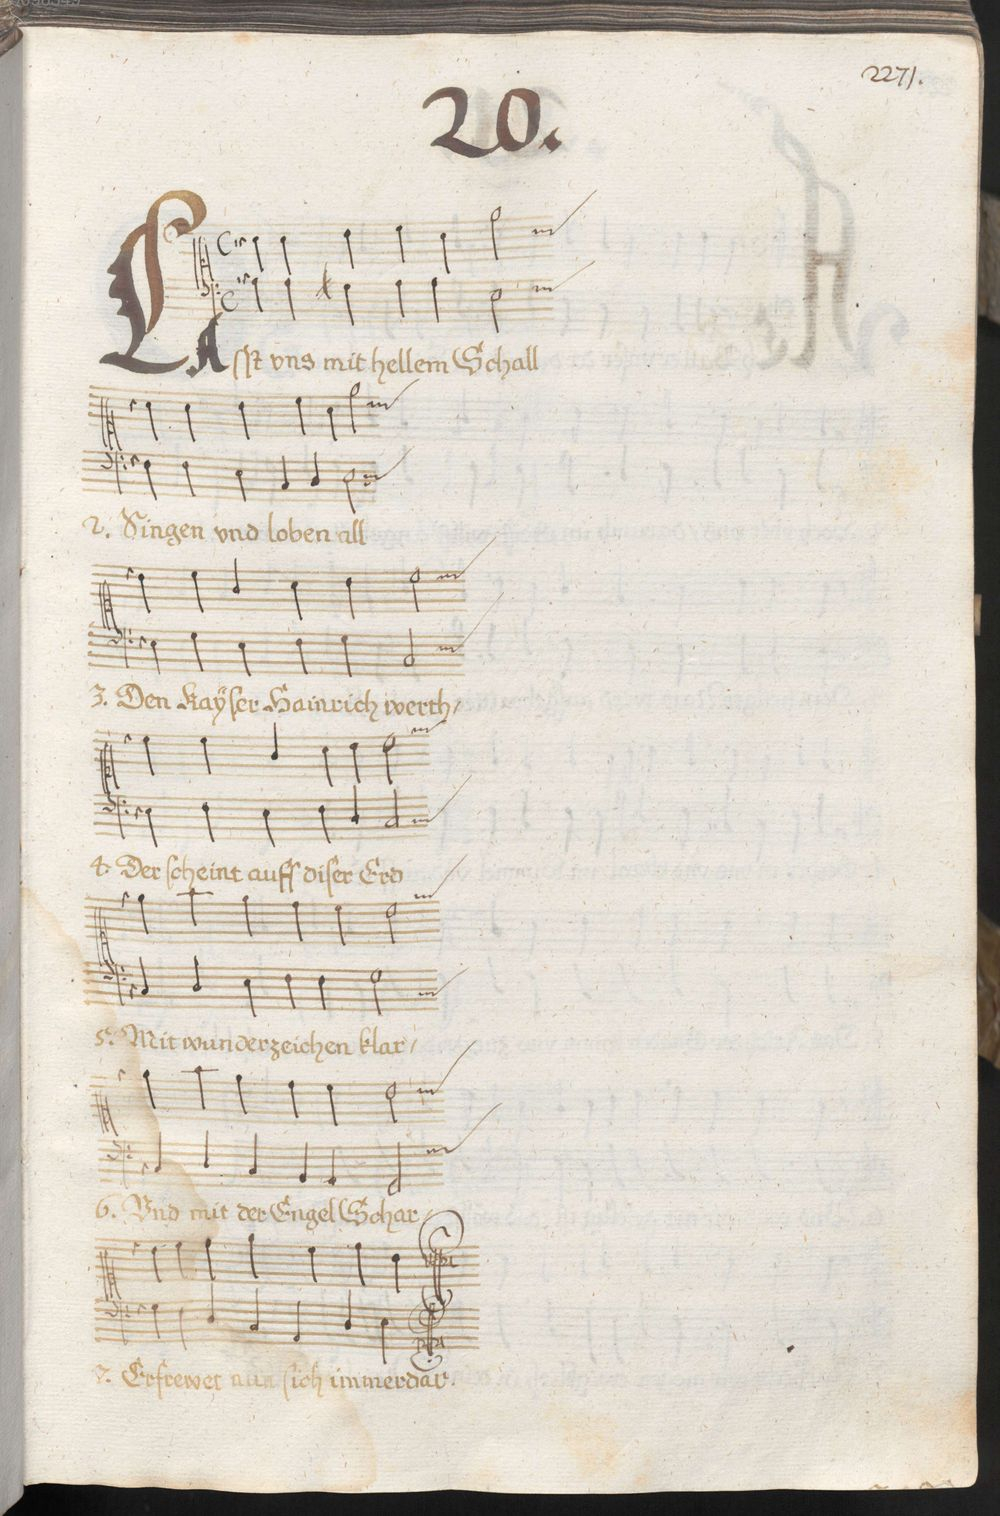 2271.
20.
LAsst vns mit hellem Schall
2. Singen vnd loben all
3. Den Kaÿser Hainrich werth/
4. Der scheint auff diser Erd
5. Mit wunderzeichen klar/
6. Vnd mit der Engel Schar/
7. Erfrewet nun sich immerdar.